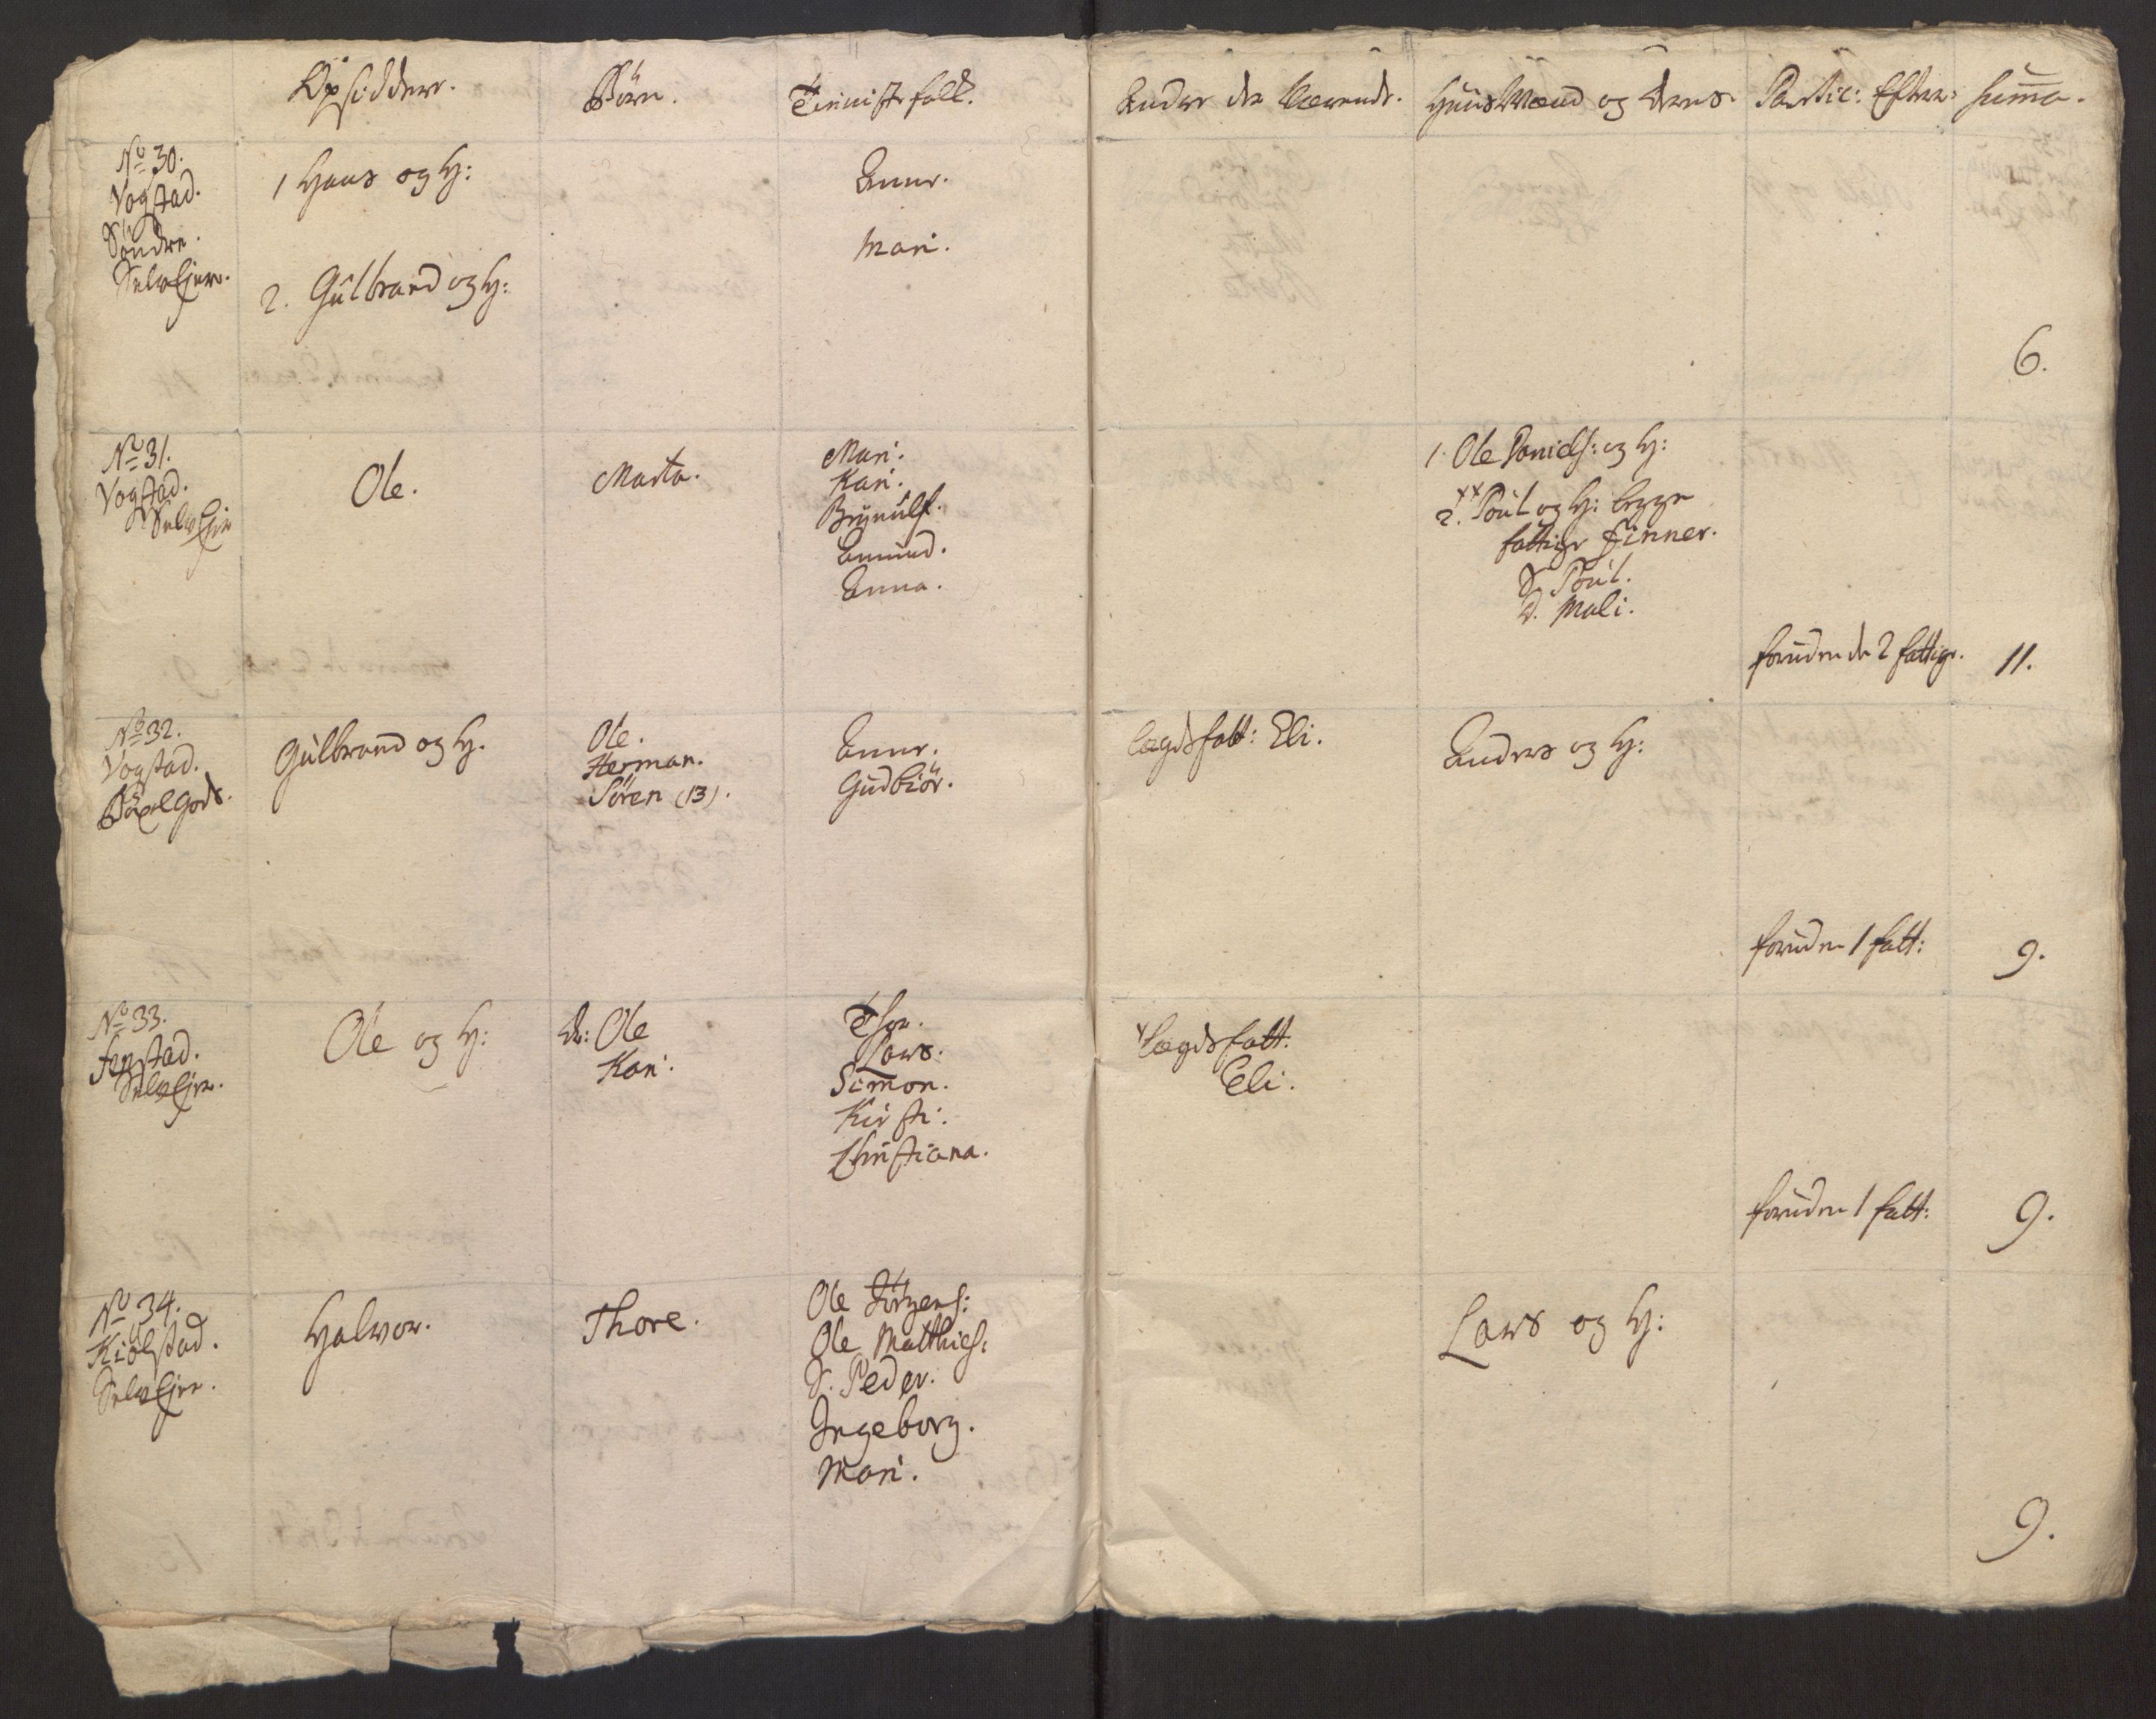 Opsiddere.
Börn.
Tienistefolk.
Andre der Værende.
HuusMænd og deres.
Partic: Efter:
Summa.
No 30.
Vogstad.
Söndre.
SelvEjere.
1 Hans og H:
2. Gulbrand og H:
Anne.
Mari.
6.
No 31.
Vogstad.
SelvEjer
Ole.
Marta.
Mari.
Kari.
Brynulf.
Amund.
Anna.
1. Ole Daniels: og H:
2. Poul og H: begge
fattige Finner.
S. Poul.
D. Mali.
foruden de 2 fattige.
11.
No 32.
Vogstad.
Gods.
Gulbrand og H.
Ole.
Herman.
Sören (13).
Anne.
Gudbiör.
Lægdsfatt: Eli.
Anders og H:
foruden 1 fatt:
9.
No 33.
Fenstad.
SelvEjer.
Ole og H:
Ole
Kari.
Thor.
Lars.
Simon.
Kirsti.
Christiana.
Lægdsfatt.
Eli.
foruden 1 fatt:
9.
No 34.
Kiölstad.
SelvEjer.
Halvor.
Thore.
Ole Jörgens:
Ole Matthies:
S. Peder.
Ingeborg.
Mari.
Lars og H:
9.